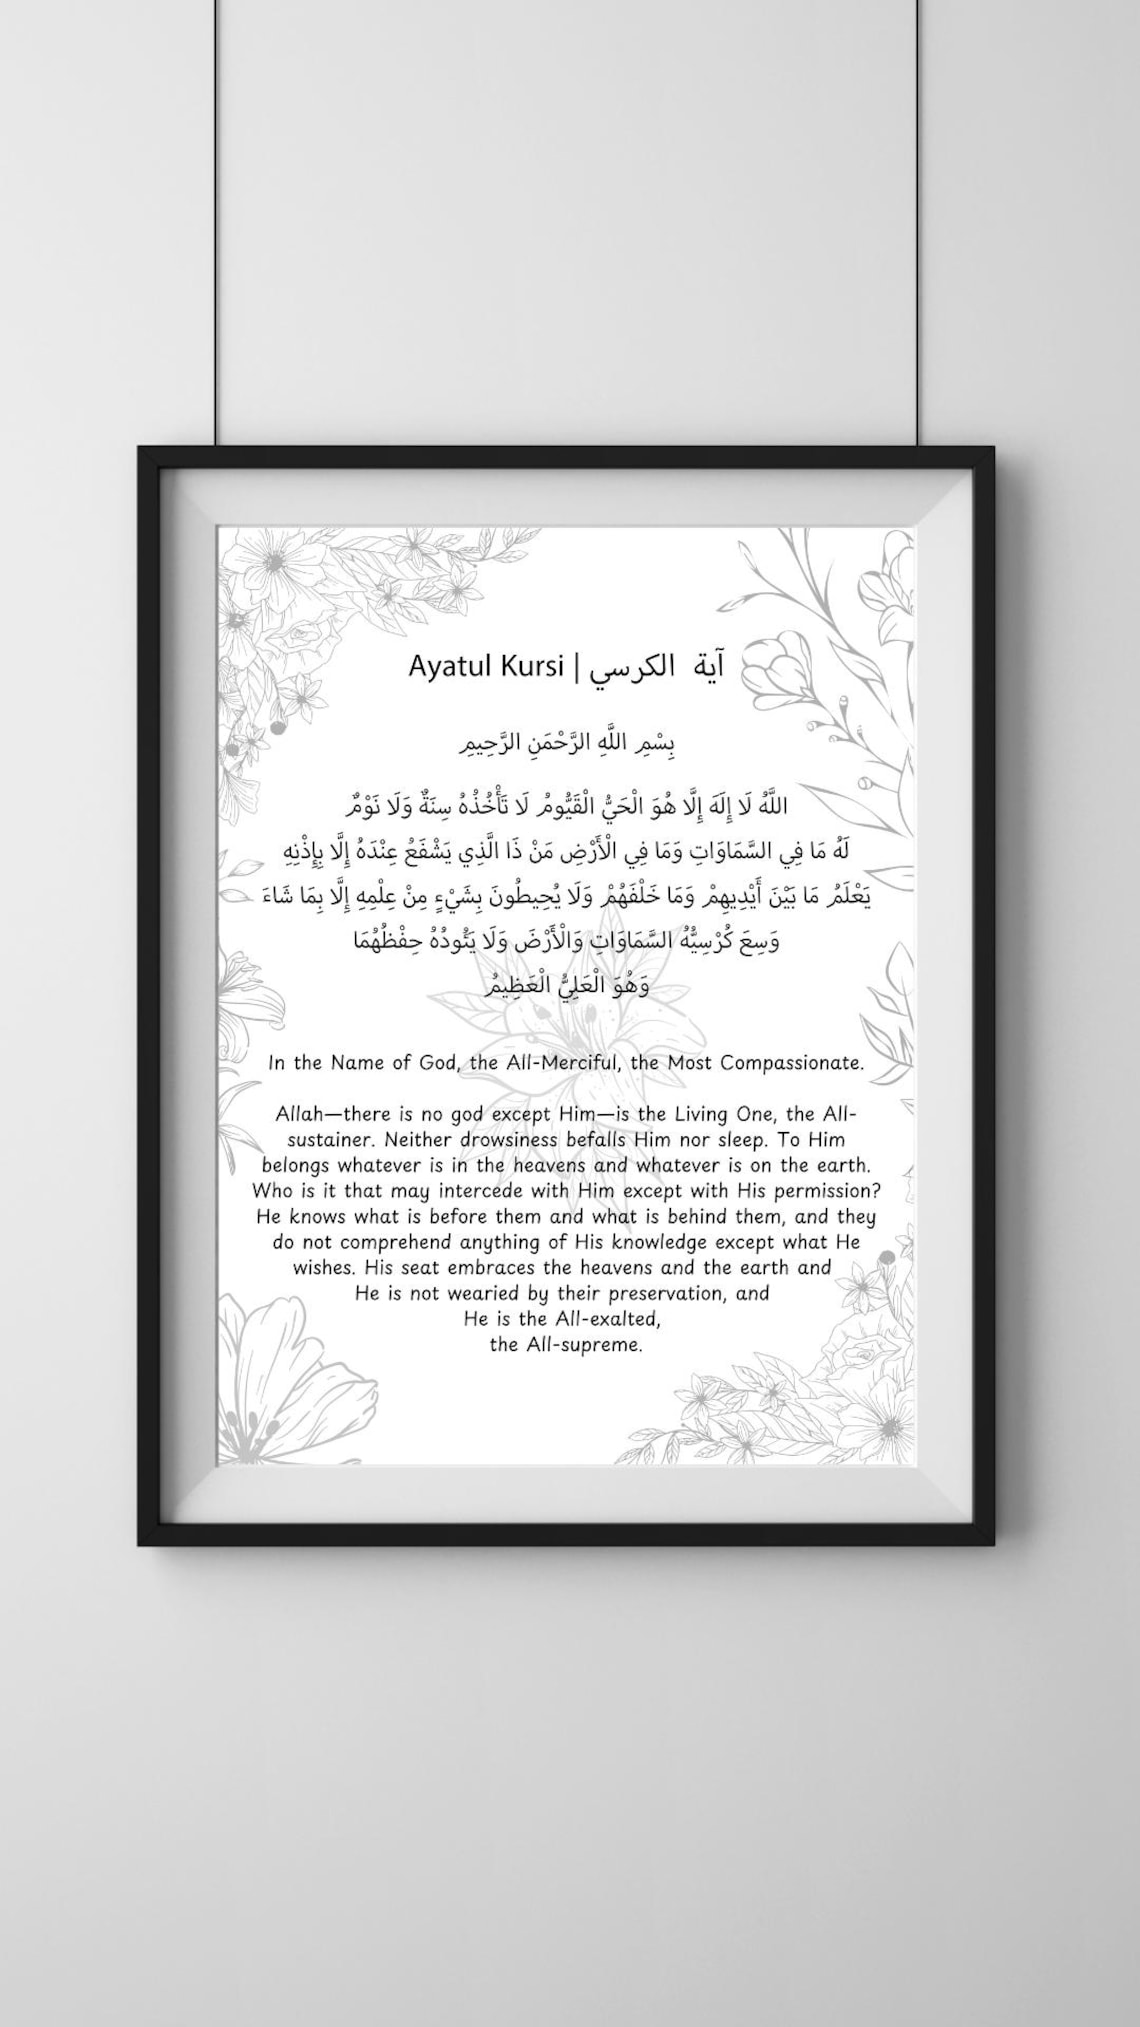 Ayatul Kursi | آية الكرسي
بِسْمِ اللَّهِ الرَّحْمَنِ الرَّحِيمِ
اللَّهُ لَا إِلَهَ إِلَّا هُوَ الْحَيُّ الْقَيُّومُ لَا تَأْخُذُهُ سِنَةٌ وَلَا نَوْمٌ
لَهُ مَا فِي السَّمَاوَاتِ وَمَا فِي الْأَرْضِ مَنْ ذَا الَّذِي يَشْفَعُ عِنْدَهُ إِلَّا بِإِذْنِهِ
يَعْلَمُ مَا بَيْنَ أَيْدِيهِمْ وَمَا خَلْفَهُمْ وَلَا يُحِيطُونَ بِشَيْءٍ مِنْ عِلْمِهِ إِلَّا بِمَا شَاءَ
وَسِعَ كُرْسِيُّهُ السَّمَاوَاتِ وَالْأَرْضَ وَلَا يَئُودُهُ حِفْظُهُمَا
وَهُوَ الْعَلِيُّ الْعَظِيمُ
In the Name of God, the All-Merciful, the Most Compassionate.
Allah—there is no god except Him—is the Living One, the All-
sustainer. Neither drowsiness befalls Him nor sleep. To Him
belongs whatever is in the heavens and whatever is on the earth.
Who is it that may intercede with Him except with His permission?
He knows what is before them and what is behind them, and they
do not comprehend anything of His knowledge except what He
wishes. His seat embraces the heavens and the earth and
He is not wearied by their preservation, and
He is the All-exalted,
the All-supreme.